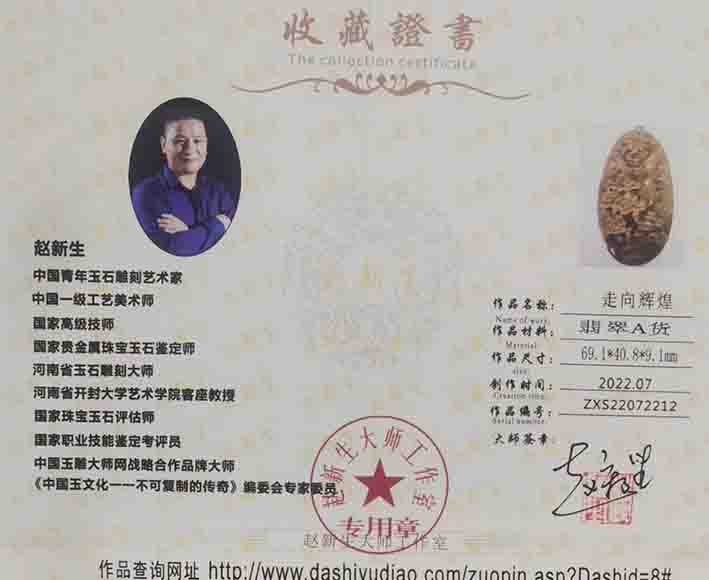 收藏證書
The collection certificate
赵新生
中国青年玉石雕刻艺术家
中国一级工艺美术师
国家高级技师
国家贵金属珠宝玉石鉴定师
河南省玉石雕刻大师
河南省开封大学艺术学院客座教授
国家珠宝玉石评估师
国家职业技能鉴定考评员
中国玉雕大师网战略合作品牌大师
《中国玉文化一一不可复制的传奇》编委会专家委员
作品名称: 走向辉煌
Name of work:
作品材料: 翡翠A货
Material:
作品尺寸: 69.1*40.8*9.1mm
size:
创作时间: 2022.07
Creation time:
作品编号: ZXS22072212
Serial number:
大师签章:
赵新生
赵新生大师工作室
专用章
赵新生大师工作室
作品查询网址 http://www.dashiyudiao.com/zuopin.asp?Dashid=8#